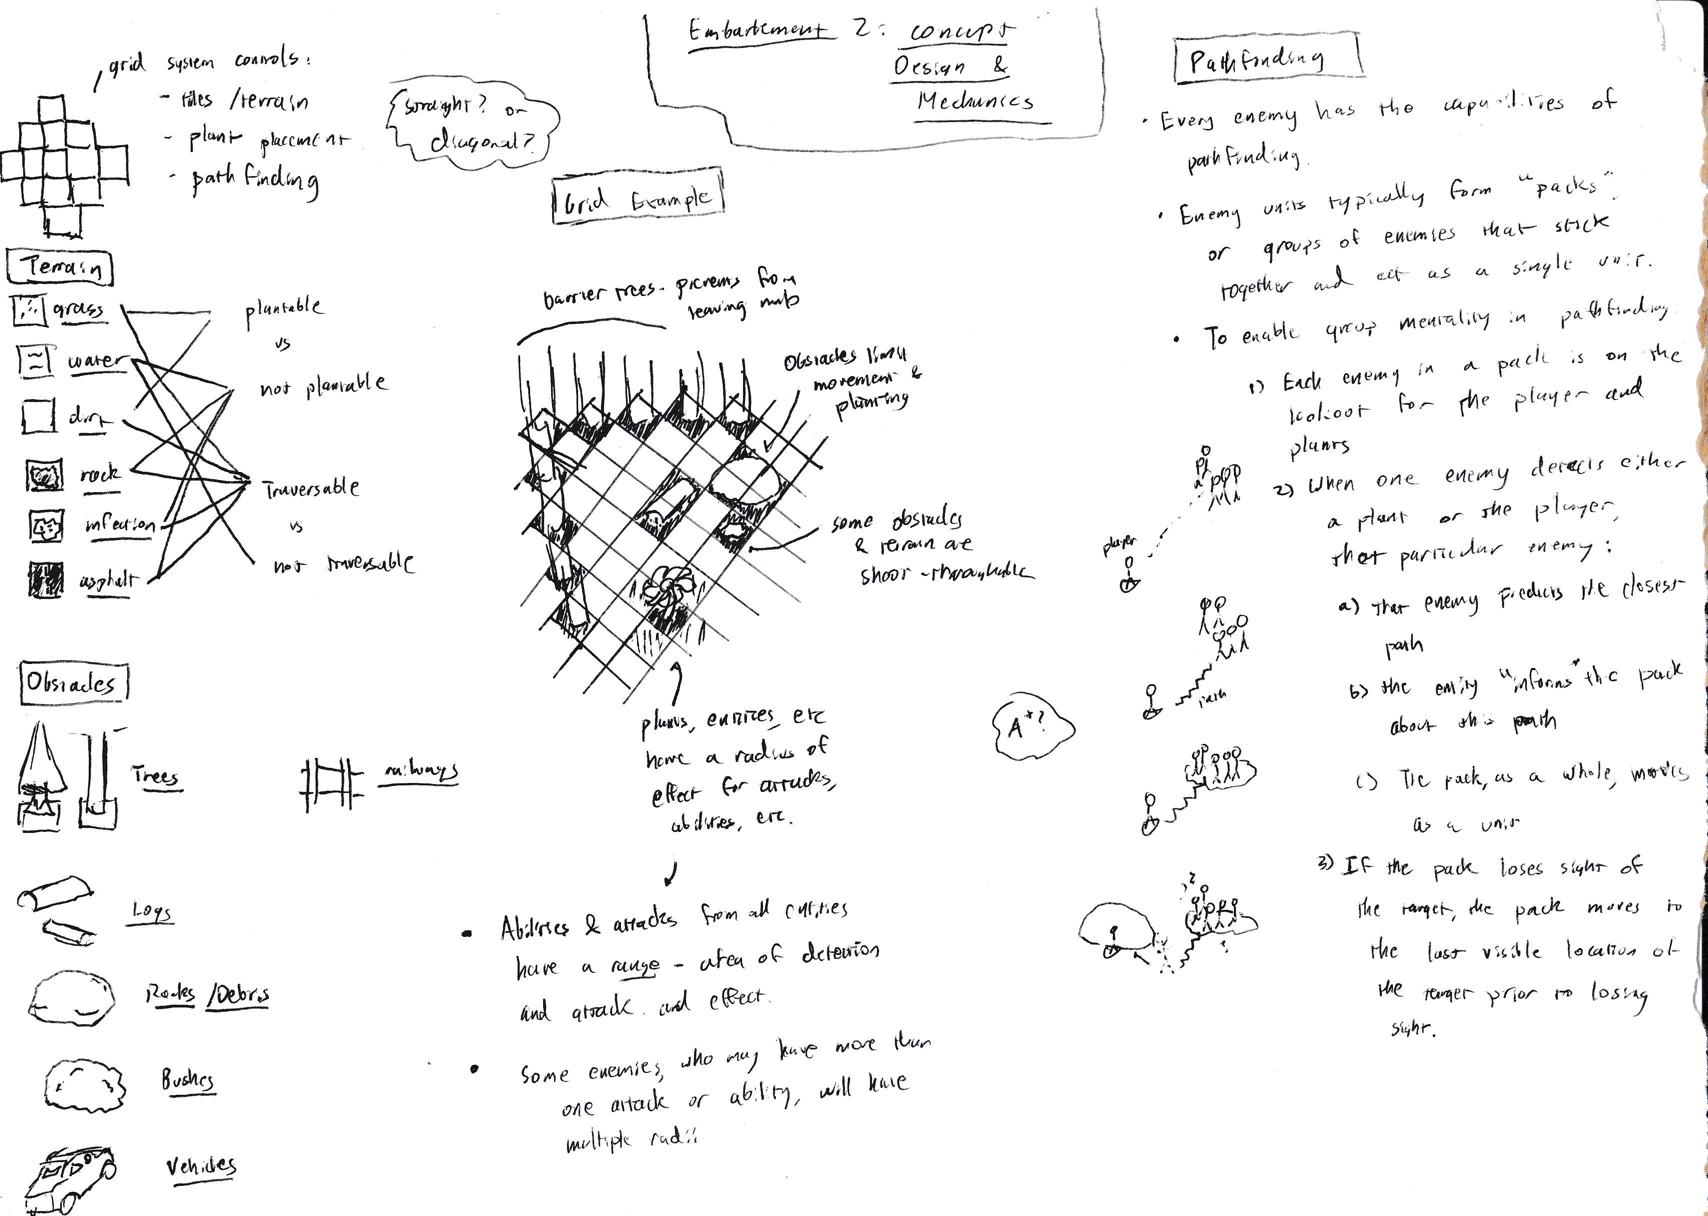 Embarkment 2: concept
Design &
Mechanics
grid system controls:
- tiles / terrain
- plant placement
- path finding
straight? or
diagonal?
Terrain
grass
water
dirt
rock
infection
asphalt
plantable
vs
not plantable
Traversable
vs
not traversable
Obstacles
Trees
railways
Logs
Rocks / Debris
Bushes
Vehicles
Grid Example
barrier trees - prevents from
leaving map
Obstacles limit
movement &
planting
some obstacles
& terrain are
shoot-throughable
plants, entities, etc
have a radius of
effect for attacks,
abilities, etc.
• Abilities & attacks from all entities
have a range - area of detection
and attack and effect.
• Some enemies, who may have more than
one attack or ability, will have
multiple radii
Pathfinding
• Every enemy has the capabilities of
pathfinding.
• Enemy units typically form "packs",
or groups of enemies that stick
together and act as a single unit.
• To enable group mentality in pathfinding
1) Each enemy in a pack is on the
lookout for the player and
plants
2) When one enemy detects either
a plant or the player,
that particular enemy:
a) that enemy predicts the closest
path
b) the entity "informs" the pack
about this path
c) The pack, as a whole, moves
as a unit
3) If the pack loses sight of
the target, the pack moves to
the last visible location of
the target prior to losing
sight.
player
path
A*?
?
?
?